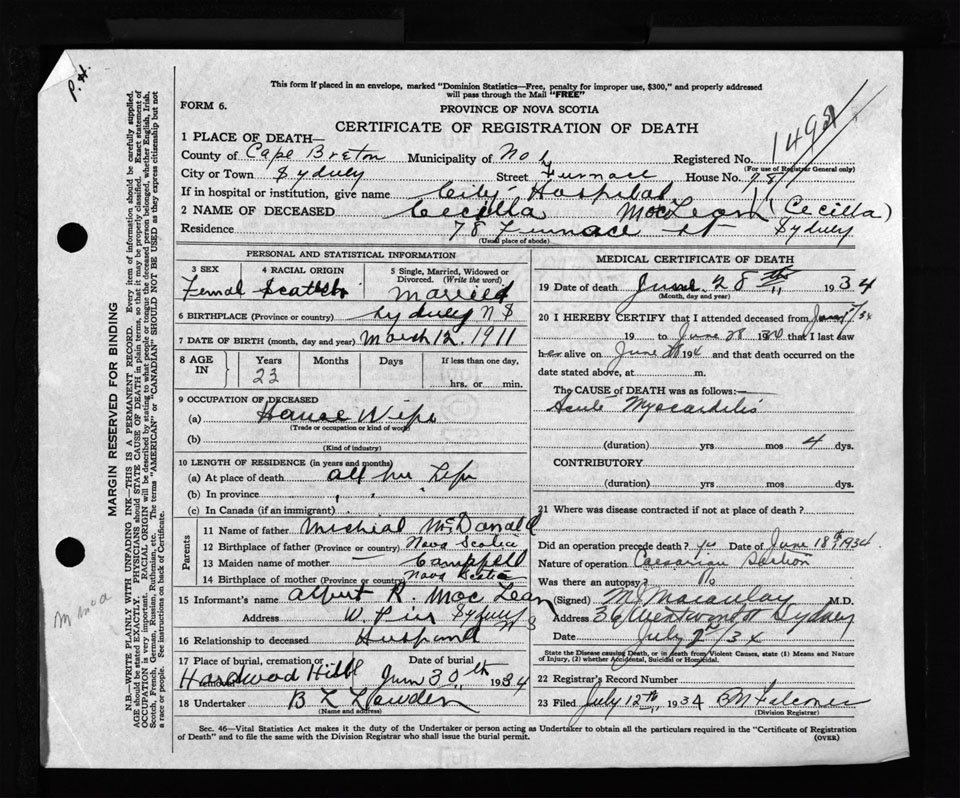 P.H.
This form if placed in an envelope, marked "Dominion Statistics—Free, penalty for improper use, $300," and properly addressed
will pass through the Mail "FREE"
FORM 6.
PROVINCE OF NOVA SCOTIA
CERTIFICATE OF REGISTRATION OF DEATH
1498
1 PLACE OF DEATH—
County of Cape Breton Municipality of Registered No.
(For use of Registrar General only)
City or Town Sydney Street Furnace House No. 78
If in hospital or institution, give name City Hospital
2 NAME OF DECEASED Cecilla MacLean (Cecilla)
Residence 78 Furnace St Sydney
(Usual place of abode)
PERSONAL AND STATISTICAL INFORMATION
3 SEX 4 RACIAL ORIGIN 5 Single, Married, Widowed or Divorced. (Write the word)
Femal Scotch Married
6 BIRTHPLACE (Province or country) Sydney N S
7 DATE OF BIRTH (month, day and year) March 12, 1911
8 AGE IN Years Months Days If less than one day,
23 hrs. or min.
9 OCCUPATION OF DECEASED
(a) House Wife
(Trade or occupation or kind of work)
(b)
(Kind of industry)
10 LENGTH OF RESIDENCE (in years and months)
(a) At place of death all her Life
(b) In province
(c) In Canada (if an immigrant)
Parents
11 Name of father Micheal McDonald
12 Birthplace of father (Province or country) Nova Scotia
13 Maiden name of mother Campbell
14 Birthplace of mother (Province or country) Nova Scotia
15 Informant's name Albert R. MacLean
Address Sydney N S
16 Relationship to deceased Husband
17 Place of burial, cremation or removal Date of burial
Hardwood Hill June 30th 1934
18 Undertaker
(Name and address)
MEDICAL CERTIFICATE OF DEATH
19 Date of death June 28th 1934
(Month, day and year)
20 I HEREBY CERTIFY that I attended deceased from
19 to June 28 19 that I last saw
her alive on June 28 19 and that death occurred on the
date stated above, at m.
The CAUSE OF DEATH was as follows:—
Acute Myocarditis
(duration) yrs mos 4 dys.
CONTRIBUTORY
(duration) yrs mos dys.
21 Where was disease contracted if not at place of death?
Did an operation precede death? yes Date of June 18th 1934
Nature of operation Caesarian Section
Was there an autopsy? No
(Signed) M. Macaulay M.D.
Address 36 Wentworth St Sydney
Date July 2/34
State the Disease causing Death, or in death from Violent Causes, state (1) Means and Nature
of Injury, (2) whether Accidental, Suicidal or Homicidal.
22 Registrar's Record Number
23 Filed July 12th 1934
(Division Registrar)
Sec. 46—Vital Statistics Act makes it the duty of the Undertaker or person acting as Undertaker to obtain all the particulars required in the "Certificate of Registration
of Death" and to file the same with the Division Registrar who shall issue the burial permit. (OVER)
MARGIN RESERVED FOR BINDING
N.B.—WRITE PLAINLY WITH UNFADING INK—THIS IS A PERMANENT RECORD. Every item of information should be carefully supplied.
AGE should be stated EXACTLY. PHYSICIANS should STATE CAUSE OF DEATH in plain terms, so that it may be properly classified. Exact statement of
OCCUPATION is very important. RACIAL ORIGIN will be described by stating to what people or tongue the deceased person belonged, whether English, Irish,
Scotch, French, German, Russian, Ruthenian, etc. The terms "AMERICAN" or "CANADIAN" SHOULD NOT BE USED as they express citizenship but not
a race or people. See instructions on back of Certificate.